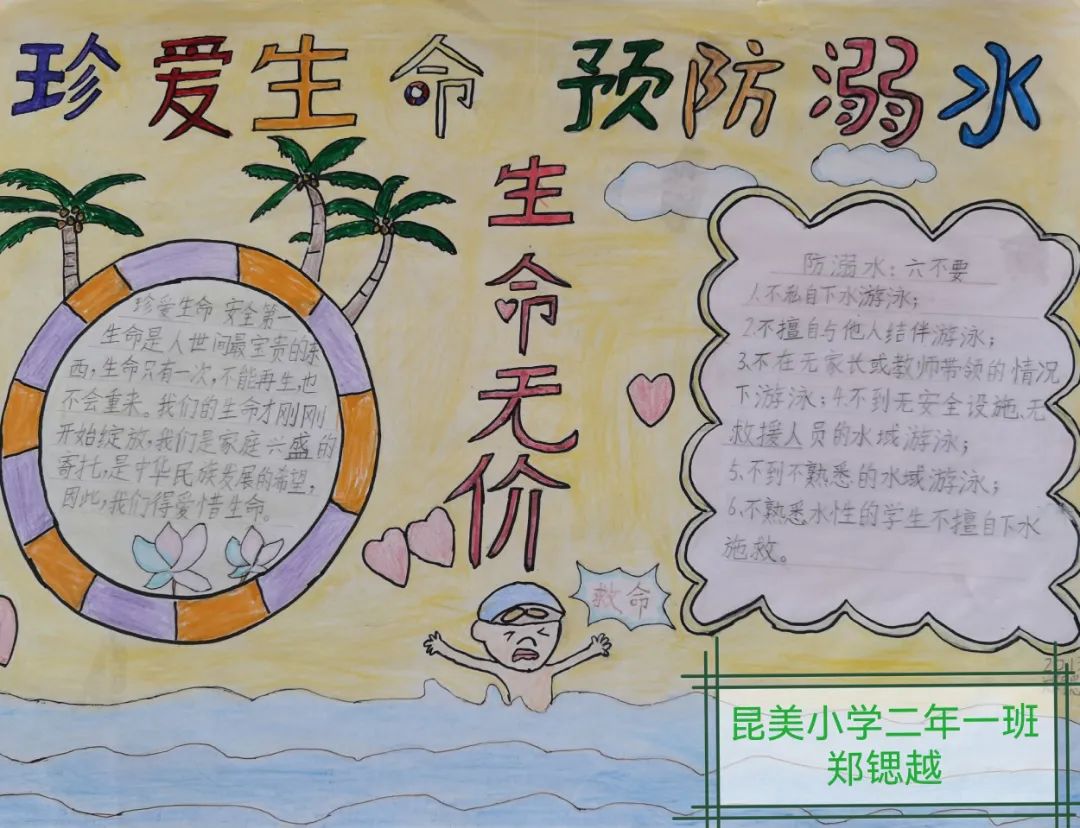 珍爱生命 预防溺水
生命无价
珍爱生命 安全第一
生命是人世间最宝贵的东
西,生命只有一次,不能再生,也
不会重来。我们的生命才刚刚
开始绽放,我们是家庭兴盛的
寄托,是中华民族发展的希望,
因此,我们得爱惜生命。
防溺水:六不要
1.不私自下水游泳;
2.不擅自与他人结伴游泳;
3.不在无家长或教师带领的情况
下游泳;4.不到无安全设施、无
救援人员的水域游泳;
5.不到不熟悉的水域游泳;
6.不熟悉水性的学生不擅自下水
施救。
救命
昆美小学二年一班
郑锶越